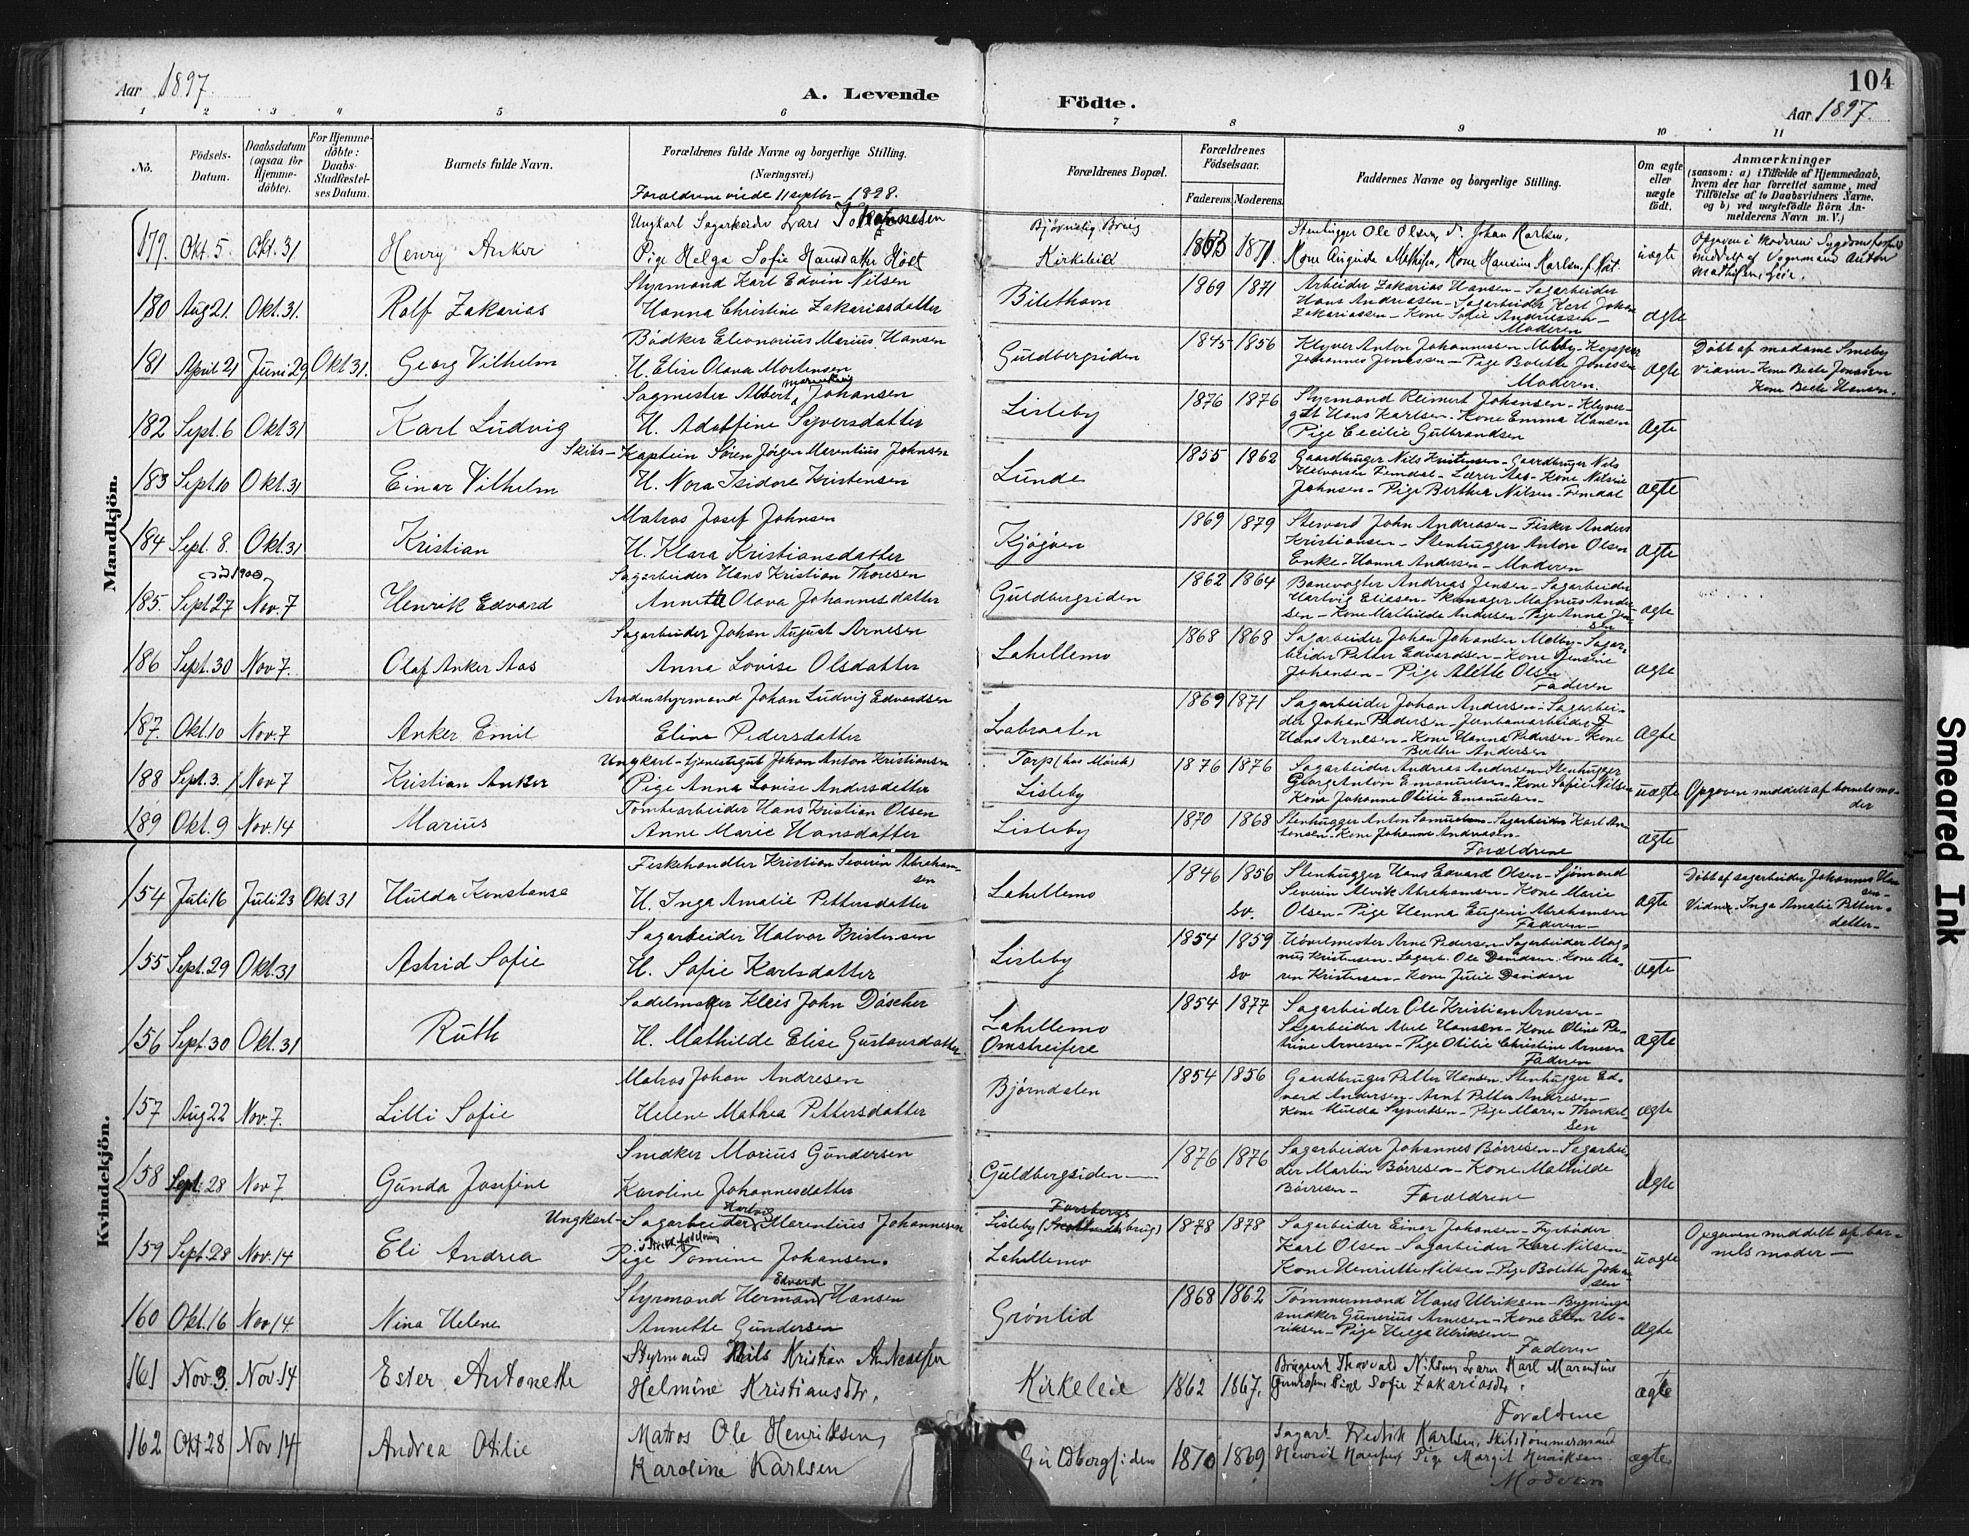 104
Aar 1897.
A. Levende
Födte.
Aar 1897.
1 2 3 4 5 6 7 8 9 10 11
No.
Födsels-
Datum.
Daabsdatum
(ogsaa for
Hjemme-
döbte).
For Hjemme-
döbte:
Daabs-
Stadfæstel-
ses Datum.
Barnets fulde Navn.
Forældrenes fulde Navne og borgerlige Stilling.
(Næringsvei.)
Forældrenes Bopæl.
Forældrenes
Födselsaar.
Faderens. Moderens.
Faddernes Navne og borgerlige Stilling.
Om ægte
eller
uægte
födt.
Anmærkninger
(saasom: a) i Tilfælde af Hjemmedaab,
hvem der har forrettet samme, med
Tilföielse af to Daabsvidners Navne,
og b) ved uægtefödte Börn An-
melderens Navn m. V.)
Mandkjön.
Forældrene viede 11 septbr. 1898.
179. Okt. 5. Okt. 31 Henry Anker
Ungkarl Sagarbeider Lars Johannesen
Pige Helga Sofie Hansdatter
Kirkeleie
1871
Stenhugger Ole Olsen, Johan Karlsen,
Kone Auguste Mathisen, Kone Hansine Karlsen
uægte
180 Aug 21. Okt. 31. Rolf Zakarias
Styrmand Karl Edvin Nilsen
Hanna Christine Zakariasdatter
1869 1871
Arbeider Zakarias Hansen - Sagarbeider
Hans Andreasen - Sagarbeider Karl Johan
Zakariassen - Kone Sofie Andreassen -
Moderen
ægte
181 April 21 Juni 29 Okt 31. Georg Vilhelm
Bödker Eleonorius Marius Hansen
H. Elise Olava Mortensen
Guldbergsiden
1845 1856
Klyver Anton Johannesen Melby -
Johannes Jonassen - Pige Bolette Jonassen
Moderen.
ægte
Döbt af madame Smeby
Vidner - Kone Beate Jonassen
Kone Hansen.
182 Sept. 6 Okt 31 Karl Ludvig
Sagmester Albert Johansen
H. Adolfine Syversdatter
Lisleby
1876 1876
Styrmand Reimert Johansen - Klyver-
gst Hans Karlsen - Kone Emma Hansen
Pige Cecilie Gulbrandsen
ægte
183 Sept. 10 Okt. 31 Einar Vilhelm
Skibs - Kaptein Sören Jörgen Marentius Johnsen
H. Nora Isidore Kristensen
Lunde
1855 1862
Gaardbruger Nils Kristensen - Gaardbruger Nils
Halvorsen Femdal - Lærer Aas - Kone Nilsine
Johnsen - Pige Berthe Nilsen - Femdal
ægte
184 Sept. 8. Okt. 31 Kristian
Matros Josef Johnsen
H. Klara Kristiansdatter
Kjøgøen
1869 1879
Steward John Andreasen - Fisker Anders
Kristiansen - Stenhugger Anton Olsen
Enke - Hanna Andersen - Moderen
ægte
185. Sept 27 Nov. 7 Henrik Edvard
Sagarbeider Hans Kristian Thoresen
Annette Olava Johannesdatter
Guldbergsiden
1862 1864
Banevogter Andreas Jensen - Sagarbeider
Hartvig Eliasen - Skomager Magnus Ander-
sen - Kone Mathilde Andersen - Pige Anna Jen-
sen
ægte
186 Sept. 30 Nov. 7. Olaf Anker Aas
Sagarbeider Johan August Arnesen
Anna Lovise Olsdatter
Lahellemo
1868 1868
Sagarbeider Johan Johansen Melby - Sagar-
beider Petter Edvardsen - Kone Jensine
Johansen - Pige Alette Olsen
Faderen
ægte
187. Okt. 10 Nov. 7 Anker Emil
Andenstyrmand Johan Ludvig Edvardsen
Eline Pedersdatter
Labraaten
1869 1871
Sagarbeider Johan Andersen - Sagarbei-
der Johan Pedersen - Jernbanearbeider
Hans Arnesen - Kone Hanna Pedersen - Kone
Berthe Andersen
ægte
188 Sept. 3. Nov 7 Kristian Anker
Ungkarl - tjenestegut Johan Anton Kristiansen
Pige Anna Lovise Andersdatter
Torp (hos Mörch)
Lisleby
1876 1876
Sagarbeider Andreas Andersen - Stenhugger
Georg Anton Emanuelsen - Kone Sofie Nilsen
Kone Johanne Otilie Emanuelsen -
uægte
Opgaven meddelt af barnets mo-
der
189 Okt. 9 Nov. 14 Marius
Tomtearbeider Hans Kristian Olsen
Anne Marie Hansdatter
Lisleby
1870 1868
Stenhugger Anton Samuelsen - Sagarbeider Karl An-
tonsen - Kone Johanne Andreasen -
Forældrene
ægte
Kvindekjön.
154 Juli 16 Juli 23 Okt 31 Hulda Konstanse
Fiskehandler Kristian Severin Abraham-
sen
H. Inga Amalie Pettersdatter
Lahellemo
1846 1856
Sv.
Stenhugger Hans Edvard Olsen - Sjömand
Severin Alvik Abrahamsen - Kone Marie
Olsen - Pige Hanna Eugeni Abrahamsen
Faderen -
ægte
Döbt af sagarbeider Johannes Han-
sen -
Vidner - Inga Amalie Petters-
datter -
155 Sept. 29 Okt. 31 Astrid Sofie
Sagarbeider Halvor Kristensen
H. Sofie Karlsdatter
Lisleby
1854 1859
Sv
Hövelmester Arne Pedersen - Sagarbeider Mag-
nus Kristensen - Sagarb. Ole Davidsen - Kone Ma-
ren Kristensen - Kone Julie Davidsen
ægte
156 Sept. 30 Okt. 31 Ruth
Sadelmager Kleis John Döscher
H. Mathilde Elise Gustavsdatter
Lahellemo
Omstreifere
1854 1877
Sagarbeider Ole Kristian Arnesen -
Sagarbeider Axel Hansen - Kone Oline Pe-
trine Arnesen - Pige Otilie Christine Arnesen
Faderen
ægte
157 Aug 22 Nov. 7. Lilli Sofie
Matros Johan Andresen
Helene Mathea Pettersdatter
Bjørndalen
1854 1856
Gaardbruger Petter Hansen - Stenhugger Ed-
vard Andersen - Arnt Petter Andresen -
Kone Hulda Syvertsen - Pige Maren Thorkel-
sen
ægte
158 Sept. 28 Nov 7. Gunda Josefine
Snedker Marius Gundersen
Karoline Johannesdatter
Guldbergsiden
1876 1876
Sagarbeider Johannes Börresen - Sagarbei-
der Martin Börresen - Kone Mathilde
Börresen - Forældrene
ægte
159 Sept. 28 Nov. 14 Eli Andrea
Ungkarl - Sagarbeider Hartvig Marentius Johannesen
Pige Tomine Johansen.
Lisleby (Forsbergs brug)
Lahellemo
1878 1878
Sagarbeider Einar Johansen - Fyrböder
Karl Olsen - Sagarbeider Karl Nilsen -
Kone Henriette Nilsen - Pige Bolette Johan-
sen
uægte
Opgaven meddelt af bar-
nets moder -
160 Okt. 16 Nov 14. Nina Helene
Styrmand Herman Edvard Hansen
Annette Gundersen
Grönlid
1868 1862
Tömmermand Hans Ulriksen - Bygnings
snedker Gunerius Arnesen - Kone Elen Ul-
riksen - Pige Helga Ulriksen
Faderen
ægte
161 Nov. 3. Nov. 14 Ester Antonette
Styrmand Nils Kristian Andreassen
Helmine Kristiansdtr.
Kirkeleie
1862 1867.
Thorvald Nilsen, Karl Marentius
Pige Sofie Zakariasdtr.
Forældrene
ægte
162 Okt 28 Nov 14 Andrea Otilie
Matros Ole Henriksen,
Karoline Karlsen
Guldbergsiden
1870 1869
Sagarb. Fredrik Karlsen, Skibstömmermand
Henrik Hansen, Pige Margit Henriksen.
Moderen
ægte
Smeared Ink